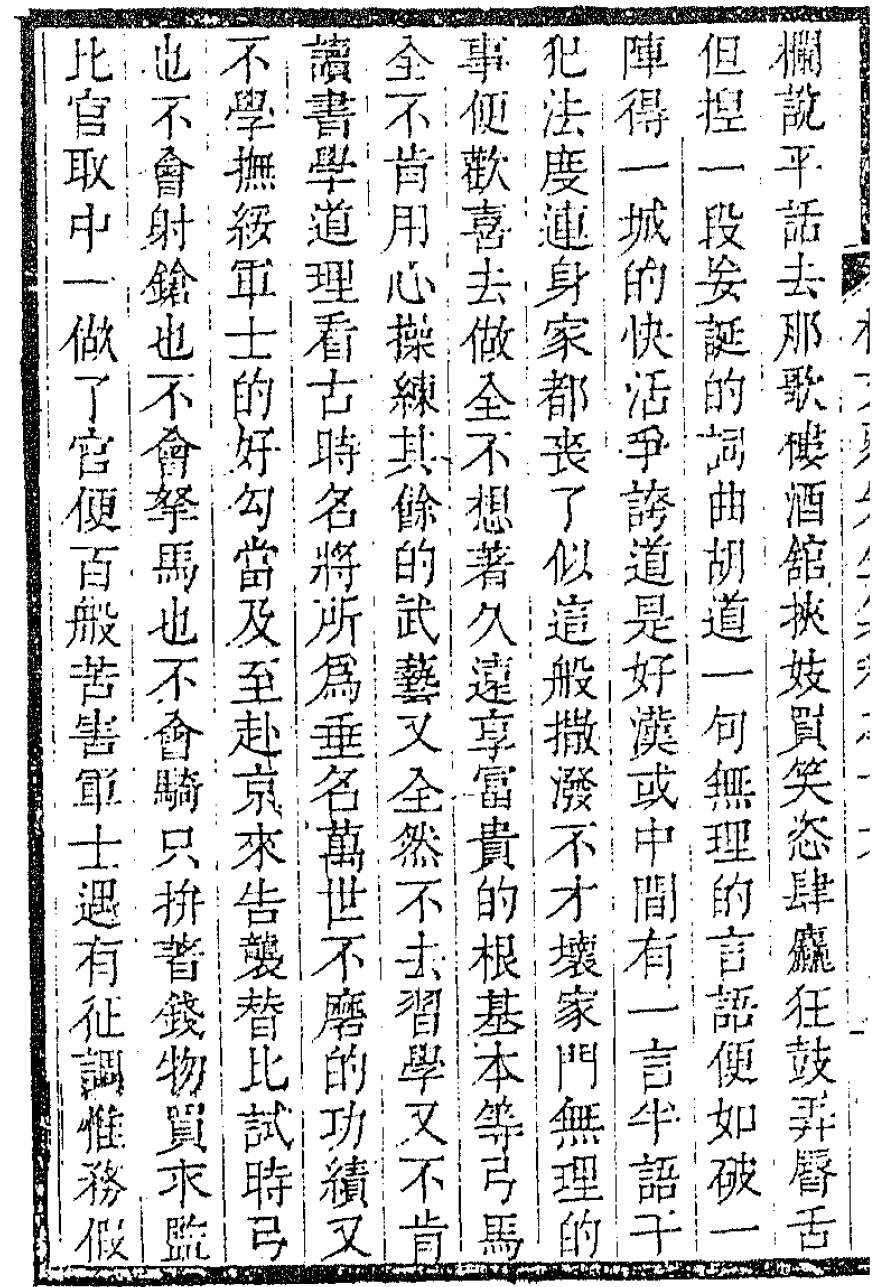 欄說平話去那歌樓酒舘挾妓買笑恣肆麤狂鼓弄唇舌
但揑一段妄誕的詞曲胡道一句無理的言語便如破一
陣得一城的快活爭誇道是好漢或中間有一言半語干
犯法度連身家都丧了似這般撒潑不才壞家門無理的
事便歡喜去做全不想著久遠享富貴的根基本等弓馬
全不肯用心操練其餘的武藝又全然不去習學又不肯
讀書學道理看古時名將所爲垂名萬世不磨的功績又
不學撫綏軍士的好勾當及至赴京來告襲替比試時弓
也不會射鎗也不會拏馬也不會騎只拚著錢物買求監
比官取中一做了官便百般苦害軍士遇有征調惟務假